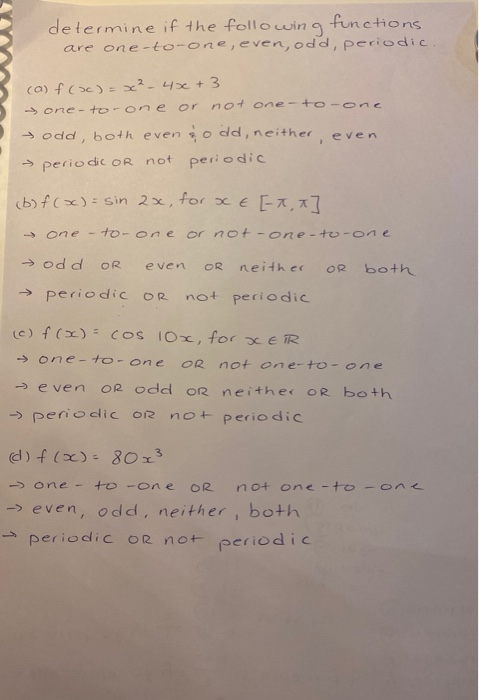 determine if the following functions
are one-to-one, even, odd, periodic.
(a) f(x) = x² - 4x + 3
→ one-to-one or not one-to-one
→ odd, both even & odd, neither, even
→ periodic OR not periodic
(b) f(x) = sin 2x, for x ∈ [-π, π]
→ one-to-one or not-one-to-one
→ odd OR even OR neither OR both
→ periodic OR not periodic
(c) f(x) = cos 10x, for x ∈ ℝ
→ one-to-one OR not one-to-one
→ even OR odd OR neither OR both
→ periodic OR not periodic
(d) f(x) = 80x³
→ one-to-one OR not one-to-one
→ even, odd, neither, both
→ periodic OR not periodic